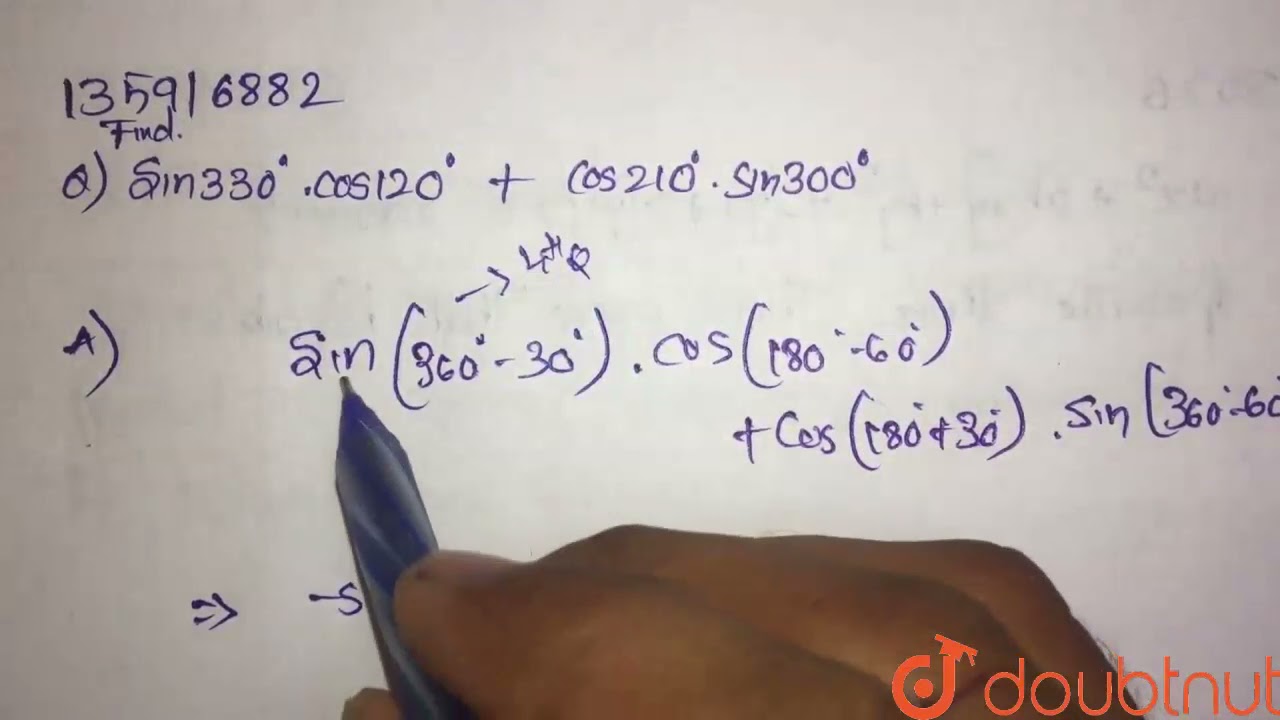 135916882
Find.
Q) Sin330°.cos120° + cos210°.sin300°
→ 4th Q
A) Sin(360°-30°).cos(180°-60°)
+Cos(180°+30°).Sin(360°-60°
⇒ -S
doubtnut